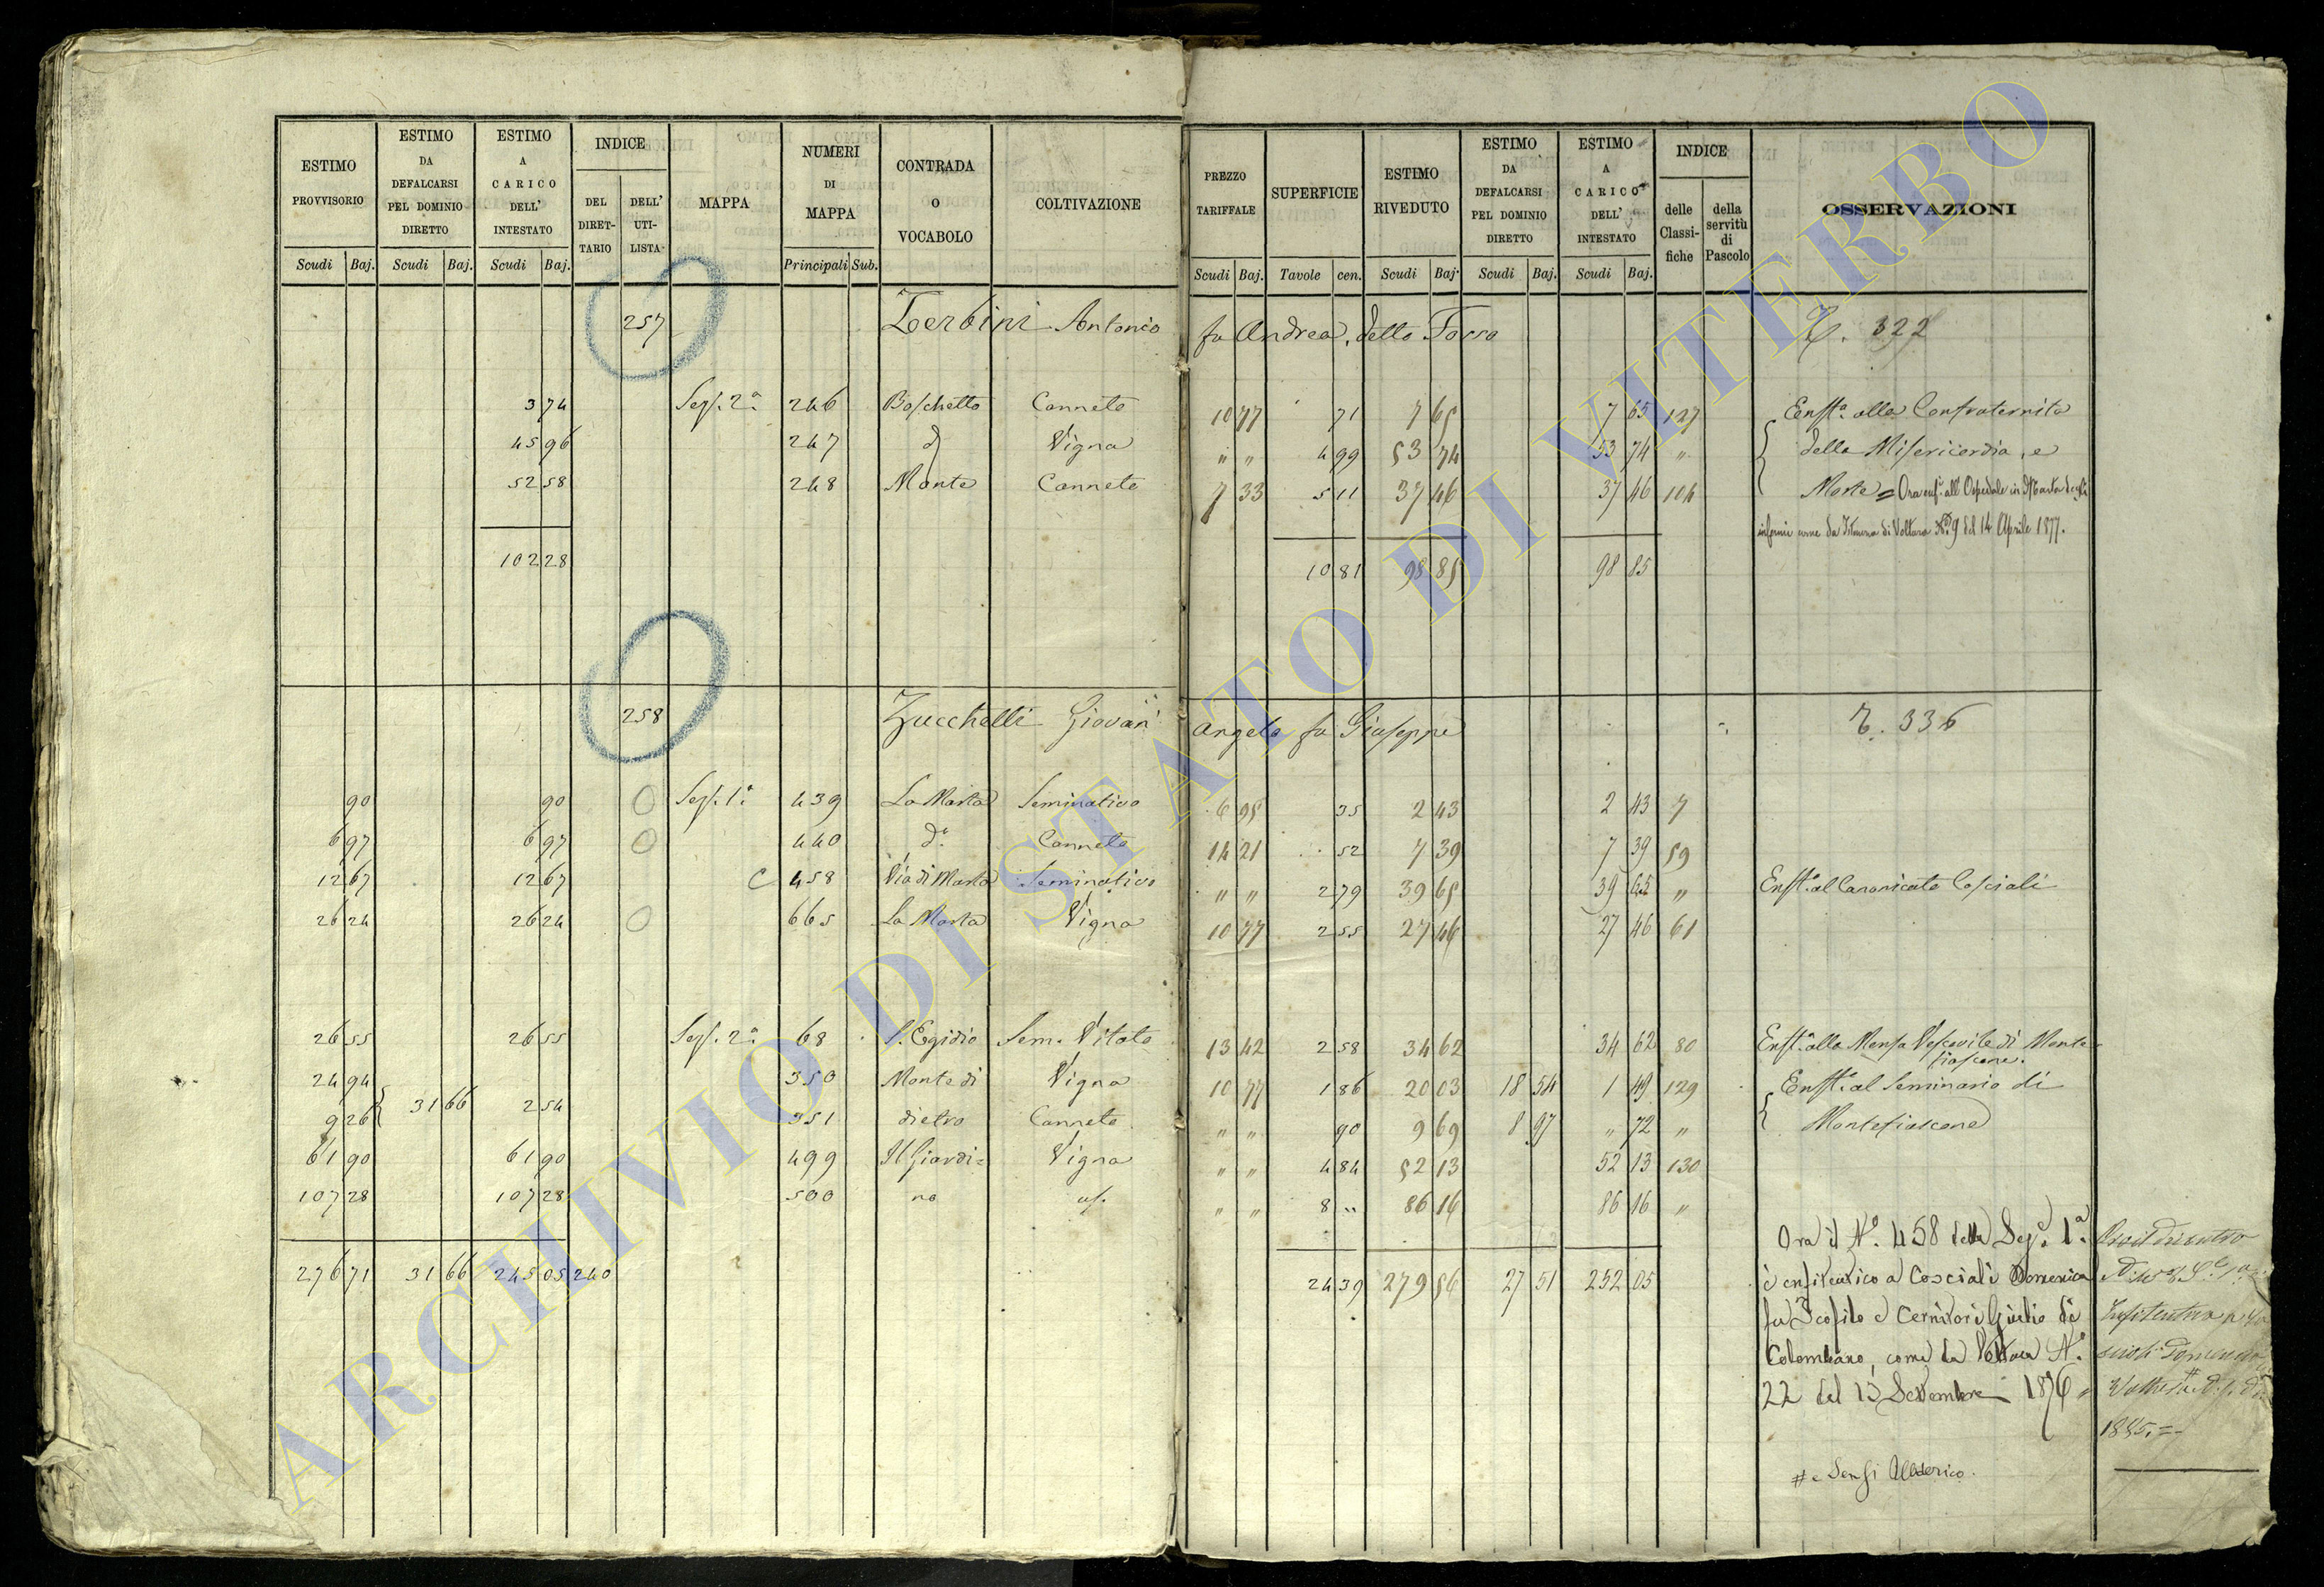 ESTIMO PROVVISORIO | ESTIMO DA DEFALCARSI PEL DOMINIO DIRETTO | ESTIMO A CARICO DELL' INTESTATO | INDICE DEL DIRET-TARIO | DELL' UTI-LISTA | MAPPA | NUMERI DI MAPPA | CONTRADA O VOCABOLO | COLTIVAZIONE | PREZZO TARIFFALE | SUPERFICIE | ESTIMO RIVEDUTO | ESTIMO DA DEFALCARSI PEL DOMINIO DIRETTO | ESTIMO A CARICO DELL' INTESTATO | INDICE delle Classi-fiche | della servitù di Pascolo | OSSERVAZIONI
Scudi Baj. Scudi Baj. Scudi Baj. Principali Sub. Scudi Baj. Tavole cen. Scudi Baj. Scudi Baj. Scudi Baj.
257 Zerbini Antonio fu Andrea, detto 322
3 74 Sez. 2a 246 Boschetto Canneto 10 77 71 7 65 7 65 127 Enfta alla Confraternita
45 96 247 do Vigna " " 4 99 53 74 53 74 " della Misericordia, e
52 58 248 Monte Canneto 7 33 5 11 37 46 37 46 104 Morte = Ora enfa all' Ospedale in
infermi come da di Voltura No 9 del 14 Aprile 1877.
102 28 10 81 98 85 98 85
258 Zucchelli Giovan Angelo fu Giuseppe 336
90 90 Sez. 1a 439 La Marta Seminativo 6 95 35 2 43 2 43 7
6 97 6 97 440 da Canneto 14 21 52 7 39 7 39 59
12 67 12 67 C 458 Via di Marta Seminativo " " 2 79 39 65 39 65 " Enfta al Canonicato Cosciali
26 24 26 24 665 La Marta Vigna 10 77 2 55 27 46 27 46 61
26 55 26 55 Sez. 2a 68 S. Egidio Sem. Vitato 13 42 2 58 34 62 34 62 80 Enfta alla Mensa Vescovile di Monte-
fiascone.
24 94 350 Monte di Vigna 10 77 1 86 20 03 18 54 1 49 129 Enfta al Seminario di
9 26 31 66 2 54 351 dietro Canneto " " 90 9 69 8 97 " 72 " Montefiascone
61 90 61 90 499 Il Giardi= Vigna " " 4 84 52 13 52 13 130
107 28 107 28 500 no " " 8 " 86 16 86 16 "
276 71 31 66 245 05 240 24 39 279 56 27 51 252 05
Ora il No. 458 della Sez. 1a
è enfiteutico a Cosciali Domenica
fu Teofilo e Cernitori Giulio di
Colombano, come da Voltura No.
22 del 13 Settembre 1876
1885. =
# e Sensi Alderico.
ARCHIVIO DI STATO DI VITERBO